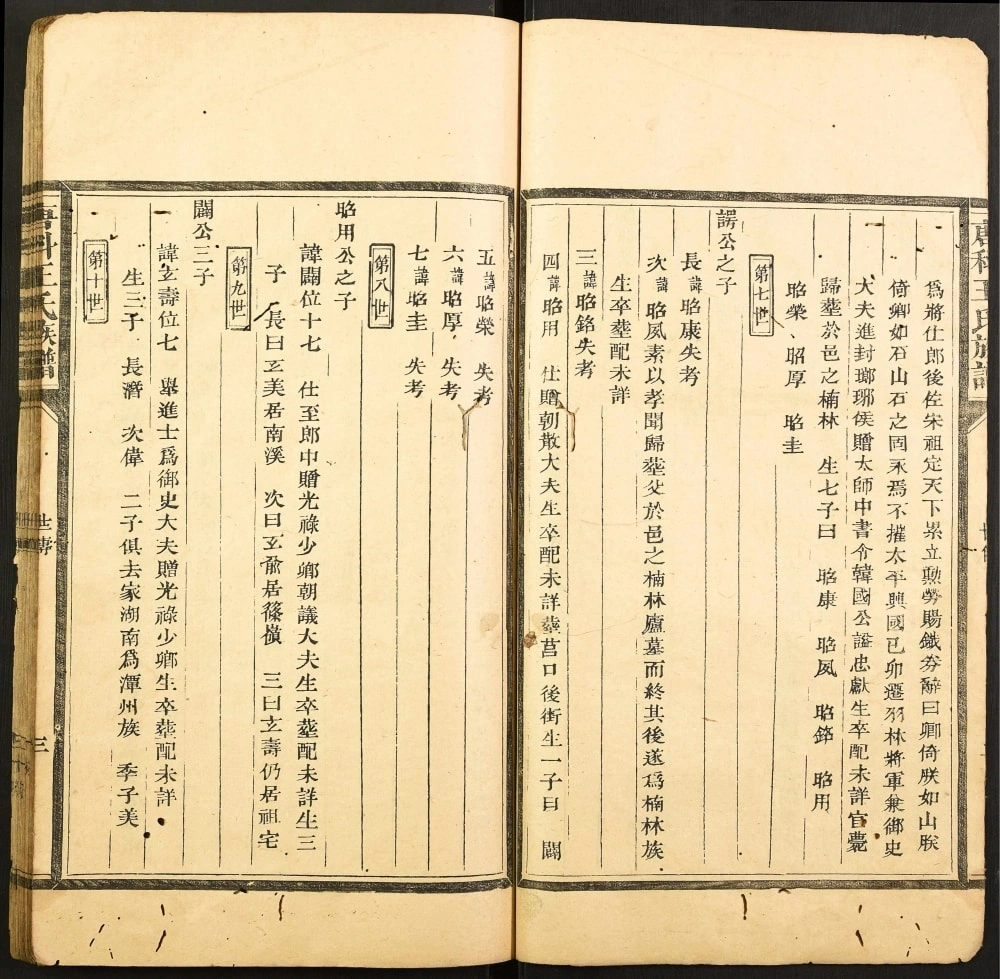 為將仕郎後佐宋祖定天下累立勳勞賜鐵劵辭曰卿倚朕如山朕
倚卿如石山石之固永焉不摧太平興國己卯遷羽林將軍兼御史
大夫進封瑯琊侯贈太師中書令韓國公謚忠獻生卒配未詳官薨
歸塟於邑之楠林 生七子曰 昭康 昭夙 昭銘 昭用
昭榮 昭厚 昭圭
第七世
諤公之子
長諱昭康失考
次諱昭夙素以孝聞歸塟父於邑之楠林廬墓而終其後遂爲楠林族
生卒塟配未詳
三諱昭銘失考
四諱昭用 仕贈朝散大夫生卒配未詳塟莒口後街生一子曰 闢
五諱昭榮 失考
六諱昭厚 失考
七諱昭圭 失考
第八世
昭用公之子
諱闢位十七 仕至郎中贈光祿少卿朝議大夫生卒塟配未詳生三
子 長曰玄美居南溪 次曰玄爺居篠嶺 三曰玄壽仍居祖宅
第九世
闢公三子
諱玄壽位七 舉進士爲御史大夫贈光祿少卿生卒塟配未詳
生三子 長濳 次偉 二子俱去家湖南爲潭州族 季子美
第十世
王氏族譜
世傳
三